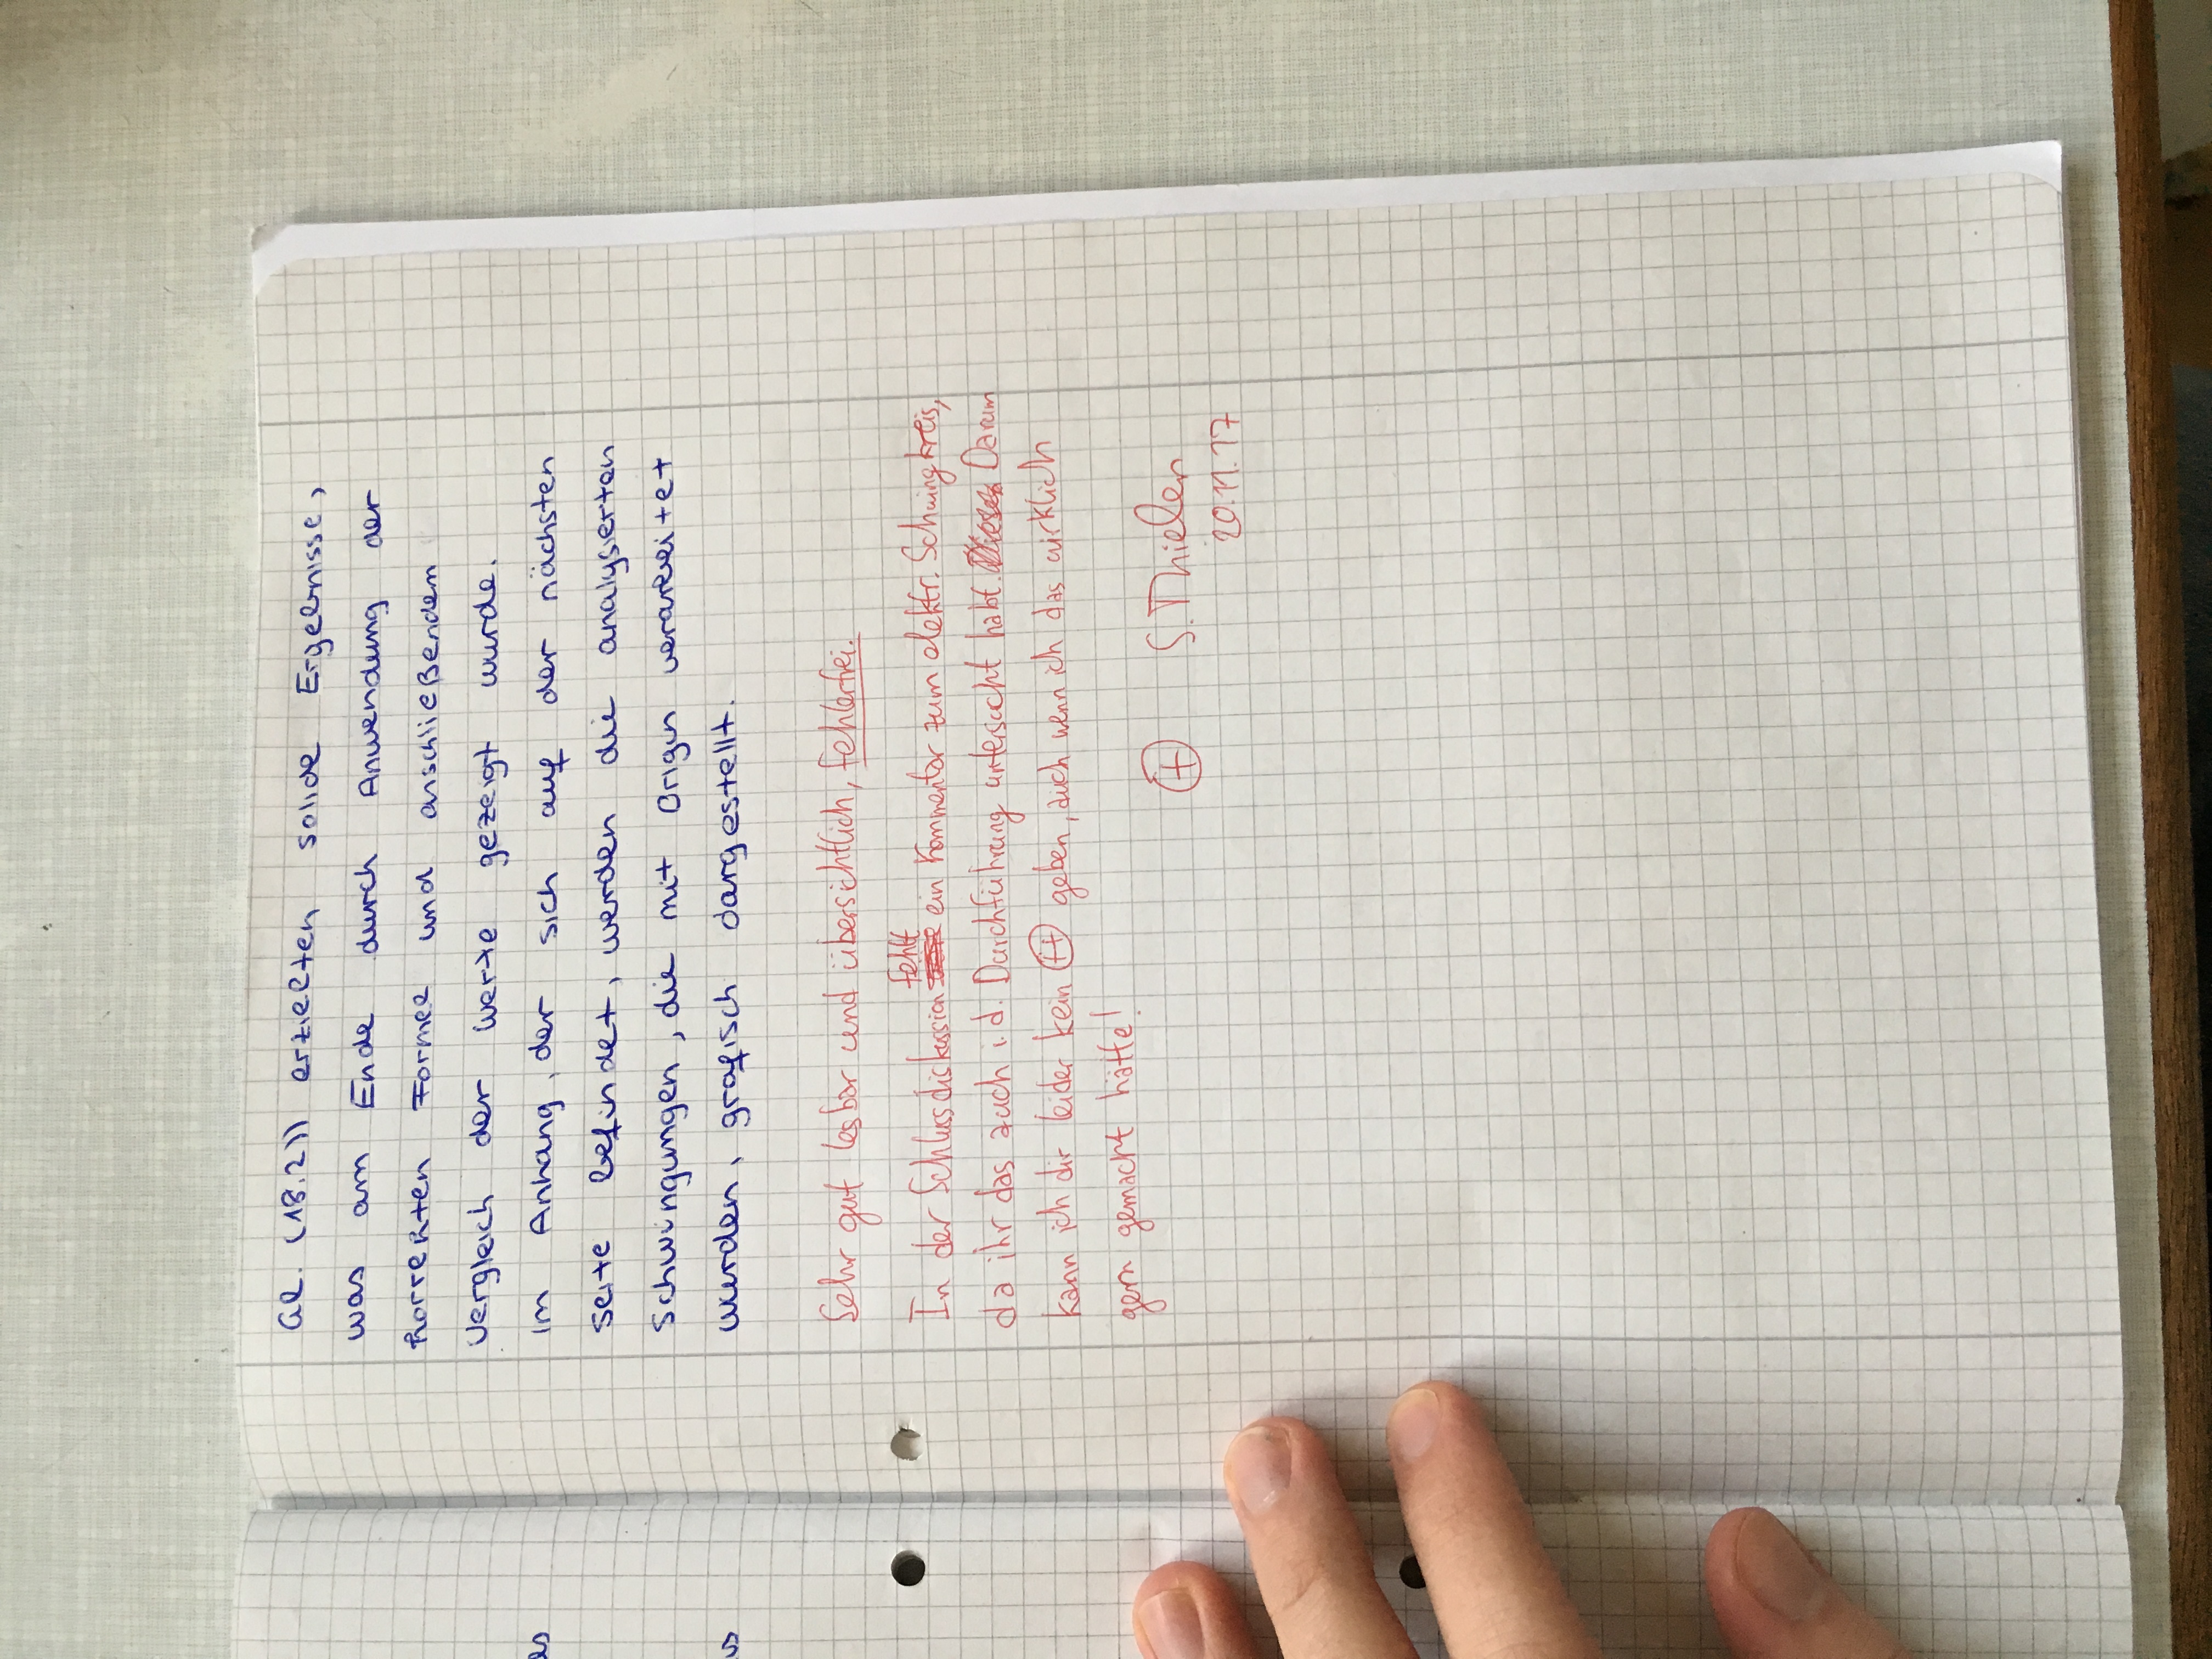 Gl. (18.2)) erzielten solide Ergebnisse,
was am Ende durch Anwendung der
korrekten Formel und anschließendem
Vergleich der Werte gezeigt wurde.
Im Anhang, der sich auf der nächsten
Seite befindet, werden die analysierten
Schwingungen, die mit Origin verarbeitet
wurden, grafisch dargestellt.
Sehr gut lesbar und übersichtlich, fehlerfrei.
In der Schlussdiskussion fehlt ein Kommentar zum elektr. Schwingkreis,
da ihr das auch i.d. Durchführung untersucht habt. Darum
kann ich dir leider kein ++ geben, auch wenn ich das wirklich
gern gemacht hätte!
+ S. Thielen
20.11.17